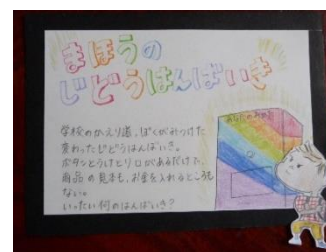 まほうの
じどうはんばいき
学校のかえり道、ぼくがみつけた
変わったじどうはんばいき。
ボタンとうけとり口があるだけだ。
商品の見本も、お金を入れるところも
ない。
いったい何のはんばいき?